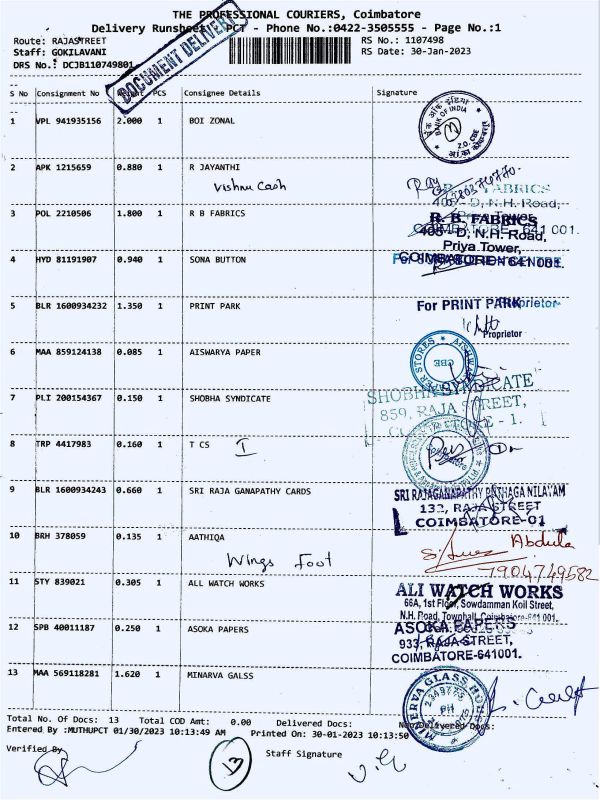 THE PROFESSIONAL COURIERS, Coimbatore
Delivery Runsheet PCT - Phone No.:0422-3505555 - Page No.:1
Route: RAJASTREET
RS No.: 1107498
Staff: GOKILAVANI
RS Date: 30-Jan-2023
DRS No.: DCJB110749801
DOCUMENT DELIVERY
S No Consignment No Weight PCS Consignee Details Signature
1 VPL 941935156 2.000 1 BOI ZONAL
बैंक ऑफ इंडिया
BANK OF INDIA
Z.O. CBE
2 APK 1215659 0.880 1 R JAYANTHI
Vishnu Cash
FABRICS
405 - D, N.H. Road,
3 POL 2210506 1.800 1 R B FABRICS
R. B. FABRICS
405 - D, N.H. Road,
Priya Tower,
COIMBATORE - 641 001.
4 HYD 81191907 0.940 1 SONA BUTTON
5 BLR 1600934232 1.350 1 PRINT PARK
For PRINT PARK
Proprietor
Proprietor
6 MAA 859124138 0.085 1 AISWARYA PAPER
CBE
7 PLI 200154367 0.150 1 SHOBHA SYNDICATE
SHOBHA SYNDICATE
859, RAJA STREET,
8 TRP 4417983 0.160 1 T CS I
9 BLR 1600934243 0.660 1 SRI RAJA GANAPATHY CARDS
SRI RAJAGANAPATHY PUTHAGA NILAYAM
132, RAJA STREET
COIMBATORE-01
10 BRH 378059 0.135 1 AATHIQA
Wings Foot
Abdulla
7904749582
11 STY 839021 0.305 1 ALL WATCH WORKS
ALI WATCH WORKS
66A, 1st Floor, Sowdamman Koil Street,
N.H. Road, Townhall, Coimbatore-641 001.
12 SPB 40011187 0.250 1 ASOKA PAPERS
ASOKA PAPERS
933, RAJA STREET,
COIMBATORE-641001.
13 MAA 569118281 1.620 1 MINARVA GALSS
MINERVA GLASS HOUSE
PH
Total No. Of Docs: 13 Total COD Amt: 0.00 Delivered Docs: Non Delivered Docs:
Entered By :MUTHUPCT 01/30/2023 10:13:49 AM Printed On: 30-01-2023 10:13:50
Verified By
13
Staff Signature